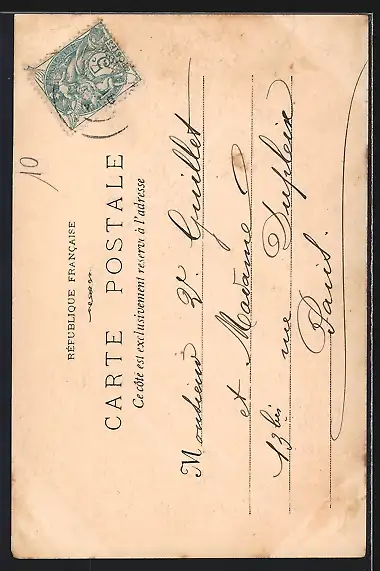 RÉPUBLIQUE FRANÇAISE
CARTE POSTALE
Ce côté est exclusivement réservé à l'adresse
Monsieur V. Guillet
et Madame
13 bis rue Dupleix
Paris.
10
5